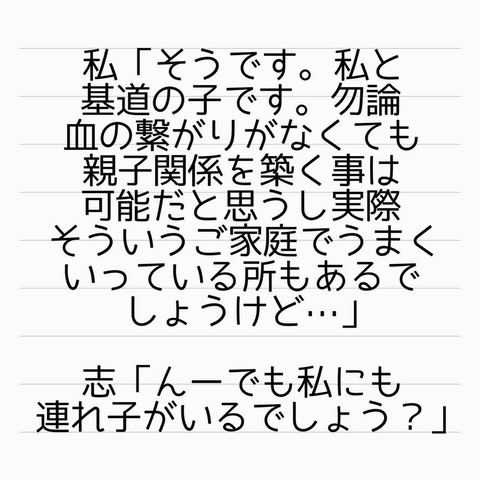 私「そうです。私と
基道の子です。勿論
血の繋がりがなくても
親子関係を築く事は
可能だと思うし実際
そういうご家庭でうまく
いっている所もあるで
しょうけど…」
志「んーでも私にも
連れ子がいるでしょう？」